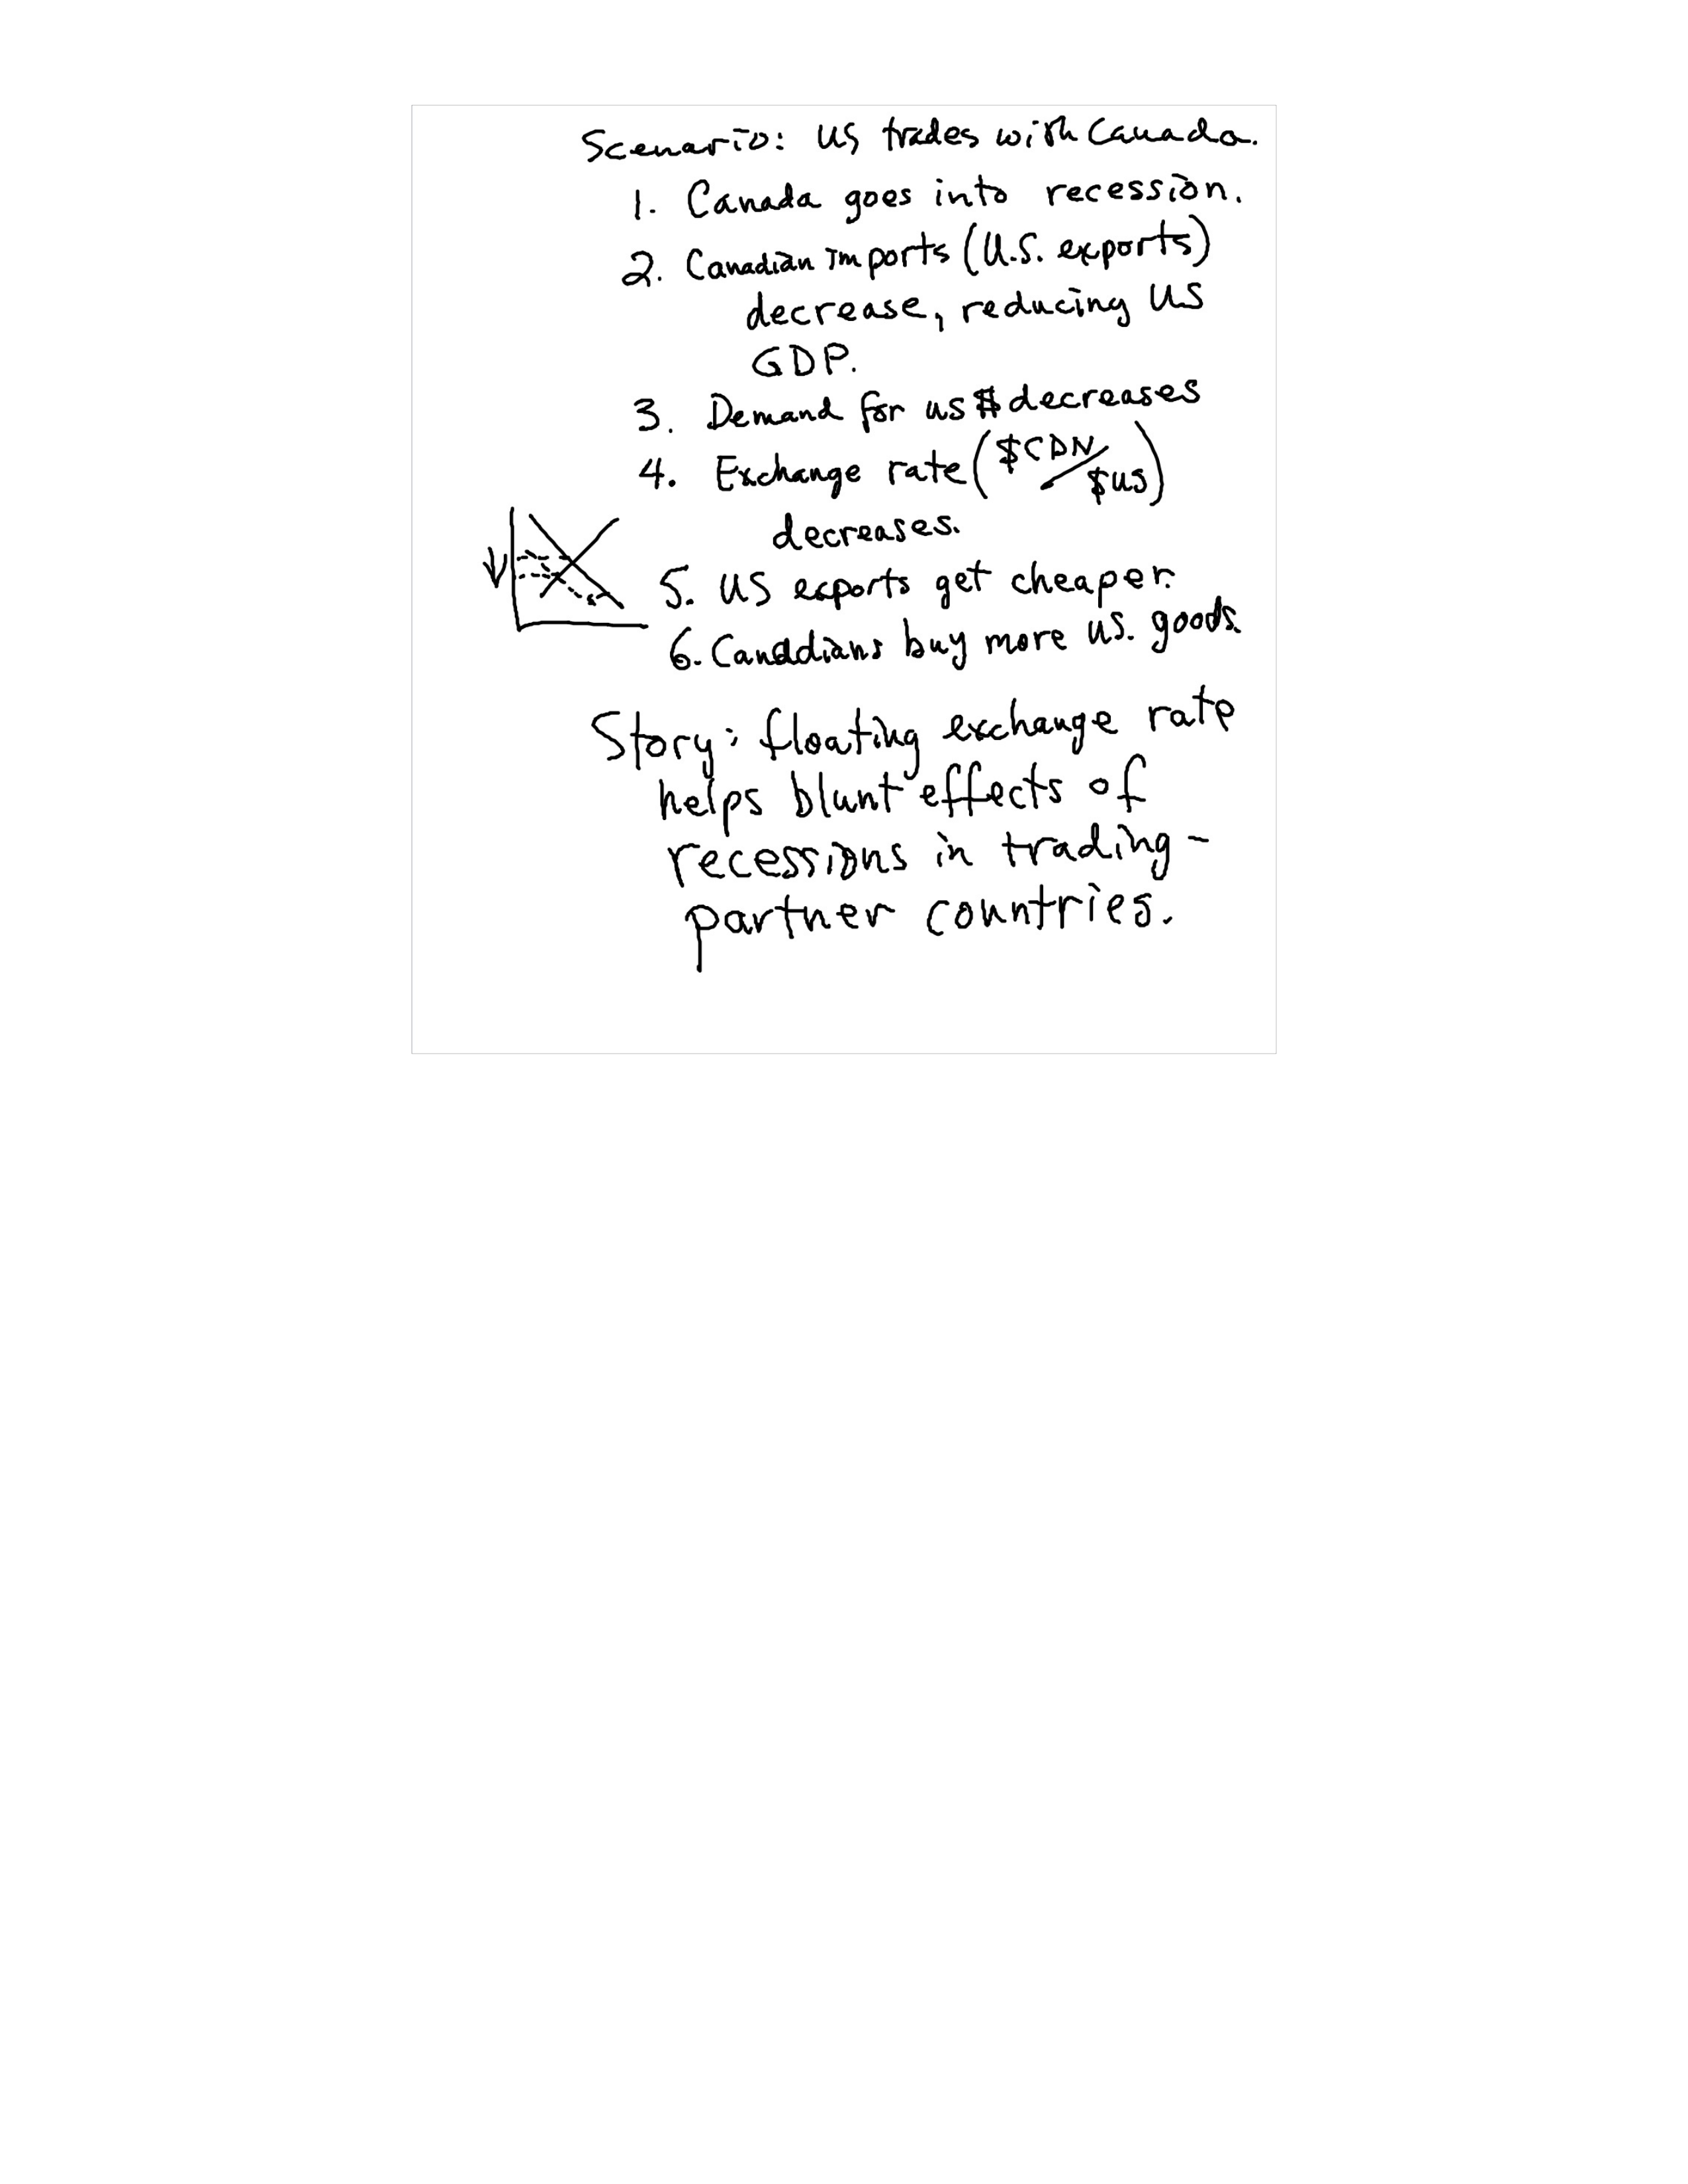 Scenario: US trades with Canada.
1. Canada goes into recession.
2. Canadian imports (U.S. exports)
decrease, reducing US
GDP.
3. Demand for US $ decreases
4. Exchange rate ($CDN/$US)
decreases.
5. US exports get cheaper.
6. Canadians buy more U.S. goods.
Story: floating exchange rate
helps blunt effects of
recessions in trading-
partner countries.